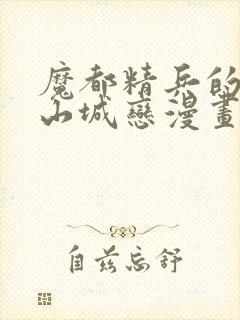 魔都精兵的
山城戀漫畫
自茲忘舒